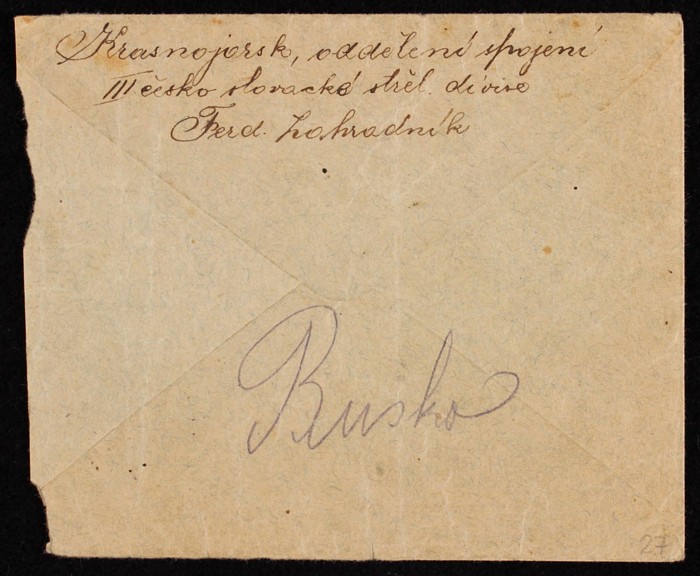 Krasnojarsk, oddělení spojení
III česko slovacké střel. divise
Ferd. Zahradník
Rusko
27